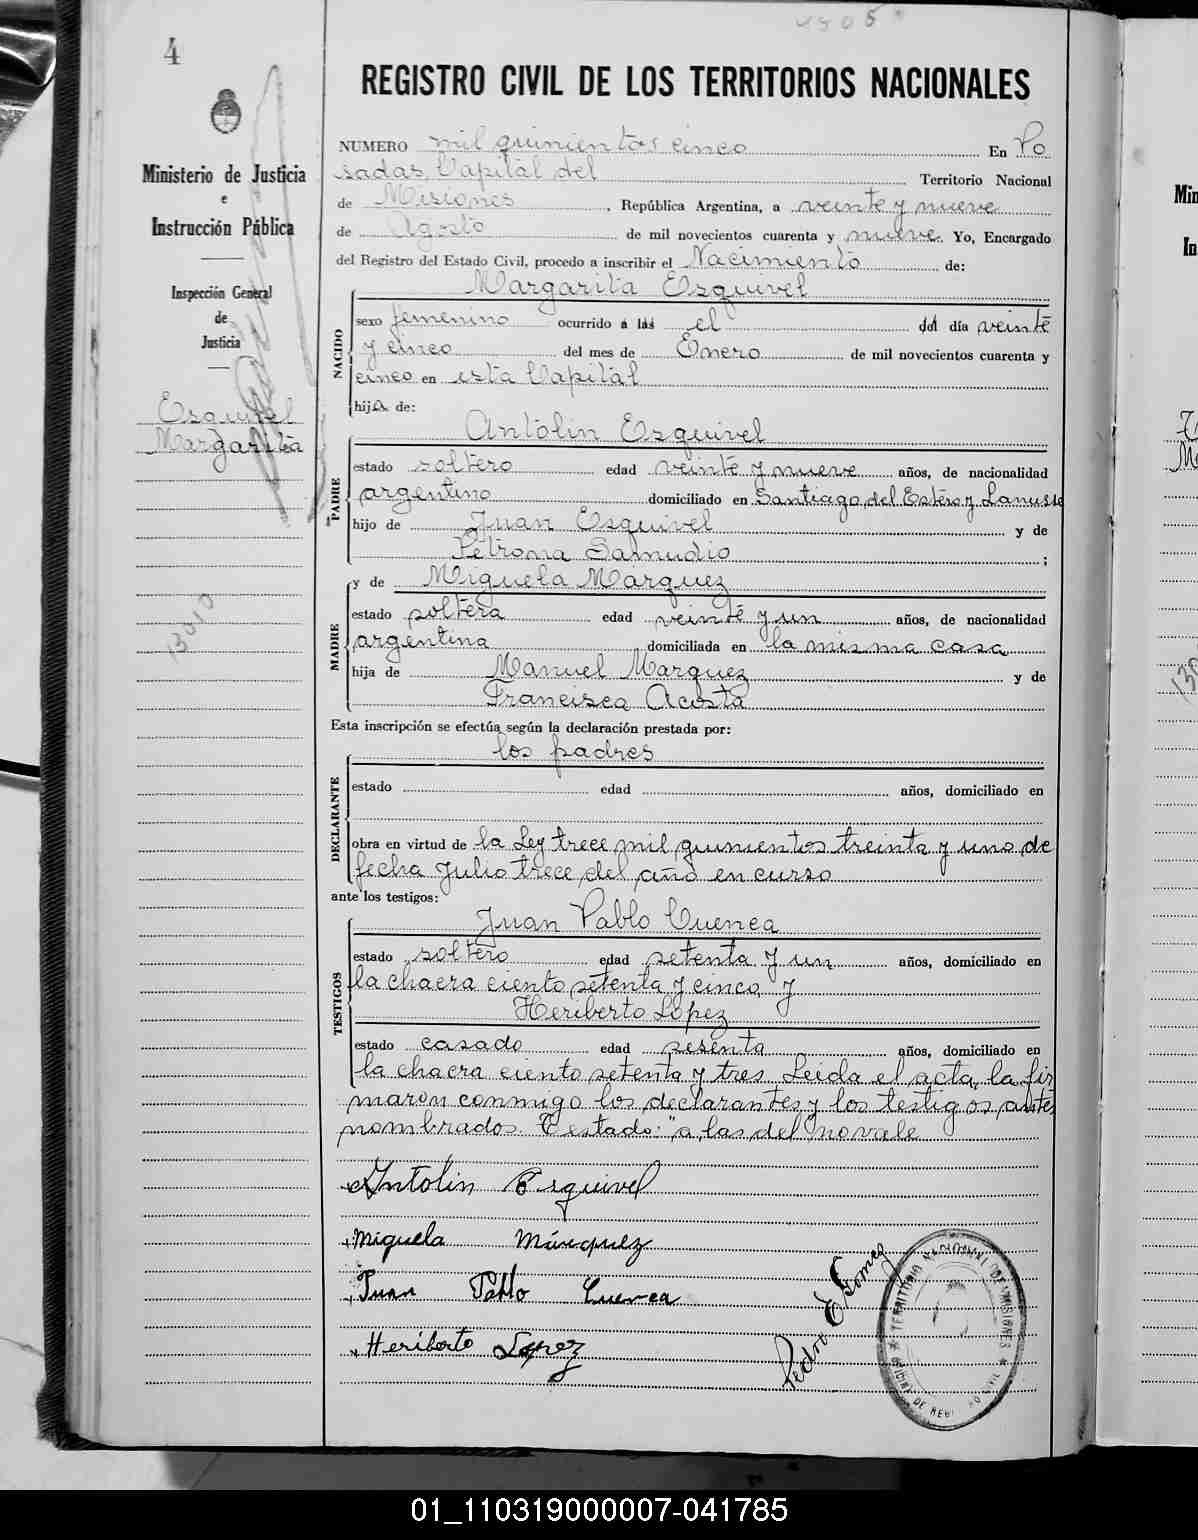 1505
4
REGISTRO CIVIL DE LOS TERRITORIOS NACIONALES
Ministerio de Justicia
e
Instrucción Pública
Inspección General
de
Justicia
Esquivel
Margarita
13010
NUMERO mil quinientos cinco En Po
sadas, Capital del Territorio Nacional
de Misiones, República Argentina, a veinte y nueve
de Agosto de mil novecientos cuarenta y nueve. Yo, Encargado
del Registro del Estado Civil, procedo a inscribir el Nacimiento de:
Margarita Esquivel
NACIDO
sexo femenino ocurrido á las el del día veinte
y cinco del mes de Enero de mil novecientos cuarenta y
cinco en esta Capital
hija de:
Antolin Esquivel
PADRE
estado soltero edad veinte y nueve años, de nacionalidad
argentino domiciliado en Santiago del Estero y Lanusse
hijo de Juan Esquivel y de
Petrona Samudio ;
y de Miguela Marquez
MADRE
estado soltera edad veinte y un años, de nacionalidad
argentina domiciliada en la misma casa
hija de Manuel Marquez y de
Francisca Acosta
Esta inscripción se efectúa según la declaración prestada por:
los padres
DECLARANTE
estado edad años, domiciliado en
obra en virtud de la Ley trece mil quinientos treinta y uno de
fecha Julio trece del año en curso
ante los testigos:
Juan Pablo Cuenca
TESTIGOS
estado soltero edad setenta y un años, domiciliado en
la chacra ciento setenta y cinco y
Heriberto Lopez
estado casado edad sesenta años, domiciliado en
la chacra ciento setenta y tres. Leida el acta, la fir
maron conmigo los declarantes y los testigos antes
nombrados. Testado: "a las del no vale
Antolin Esquivel
Miguela Márquez
Juan Pablo Cuenca
Heriberto Lopez
Pedro E Gomez
TERRITORIO NACIONAL DE MISIONES
OFICINA DE REGISTRO CIVIL
Min
In
130
01_110319000007-041785